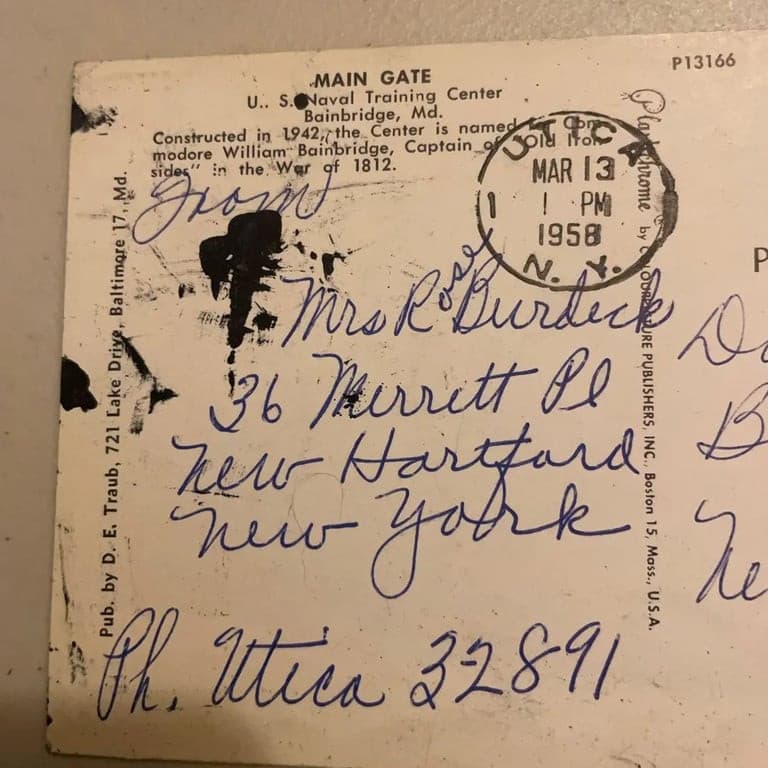 P13166
MAIN GATE
U.. S. Naval Training Center
Bainbridge, Md.
Constructed in 1942, the Center is named Com-
modore William Bainbridge, Captain of "Old Iron-
sides" in the War of 1812.
UTICA
MAR 13
1 1 PM
1958
N. Y.
From
Mrs Rose Burdick
36 Merrett Pl
New Hartford
New York
Ph. Utica 32891
Pub. by D. E. Traub, 721 Lake Drive, Baltimore 17, Md.
Plastichrome by COLOURPICTURE PUBLISHERS, INC., Boston 15, Mass., U.S.A.
P
B
Ne